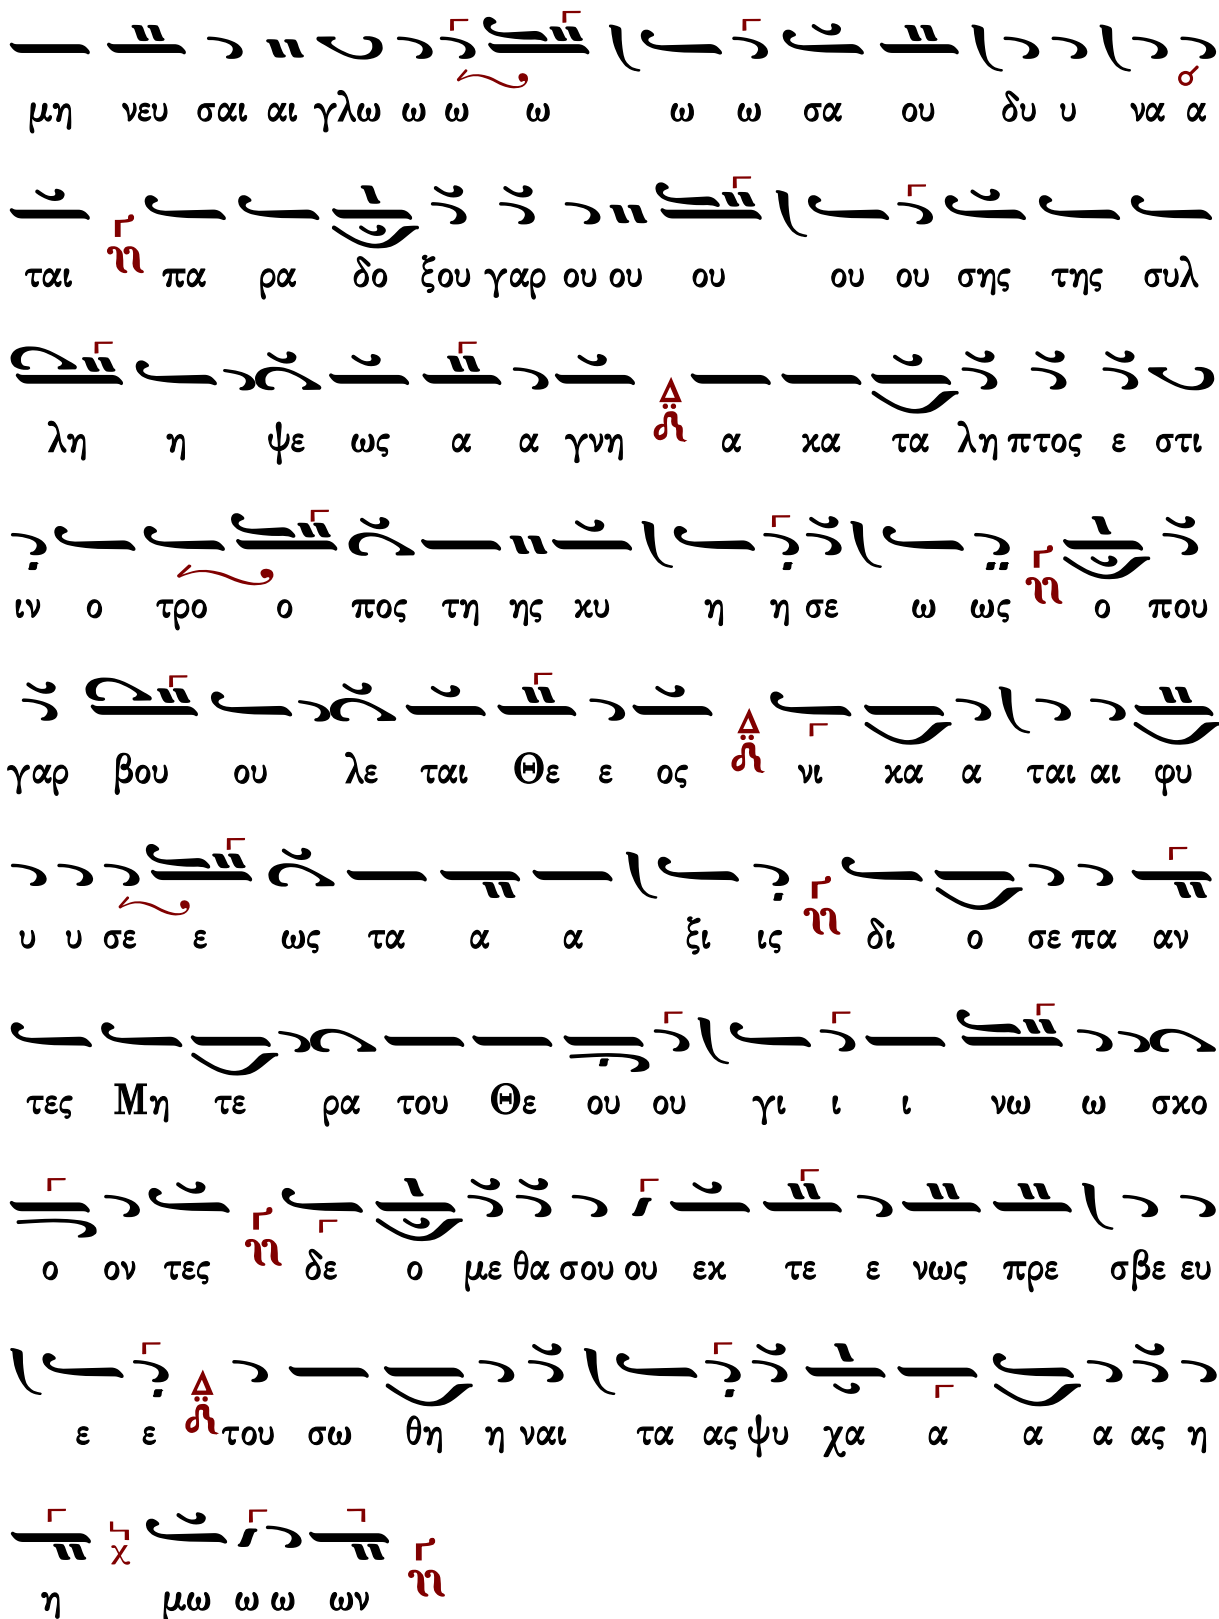 μη νευ σαι αι γλω ω ω ω ω ω σα ου δυ υ να α
ται πα ρα δο ξου γαρ ου ου ου ου ου σης της συλ
λη η ψε ως α α γνη α κα τα λη πτος ε στι
ιν ο τρο ο πος τη ης κυ η η σε ω ως ο που
γαρ βου ου λε ται Θε ε ος νι κα α ται αι φυ
υ υ σε ε ως τα α α ξι ις δι ο σε πα αν
τες Μη τε ρα του Θε ου ου γι ι ι νω ω σκο
ο ον τες δε ο με θα σου ου εκ τε ε νως πρε σβε ευ
ε ε του σω θη η ναι τα ας ψυ χα α α α ας η
η μω ω ω ων